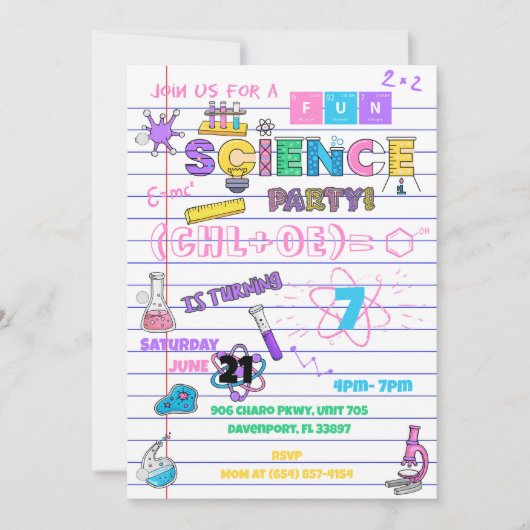 JOIN US FOR A
9 92 7
F U N
2×2
SCIENCE
E=mc²
PARTY!
(CHL+OE)=
OH
IS TURNING
7
SATURDAY
JUNE 21
4PM- 7PM
906 CHARO PKWY, UNIT 705
DAVENPORT, FL 33897
RSVP
MOM AT (654) 857-4154